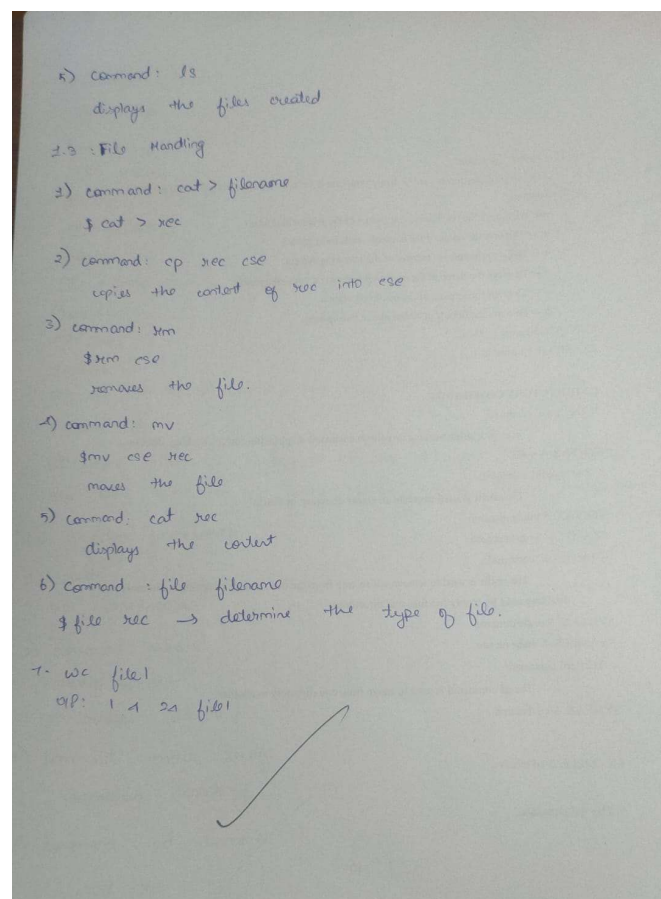 5) Command: ls
displays the files created
1.3 : File Handling
1) command: cat > filename
$ cat > rec
2) command: cp rec cse
copies the content of rec into cse
3) command: rm
$rm cse
removes the file.
4) command: mv
$mv cse rec
moves the file
5) command: cat rec
displays the content
6) Command : file filename
$ file rec → determine the type of file.
7. wc file1
O/P: 1 4 24 file1